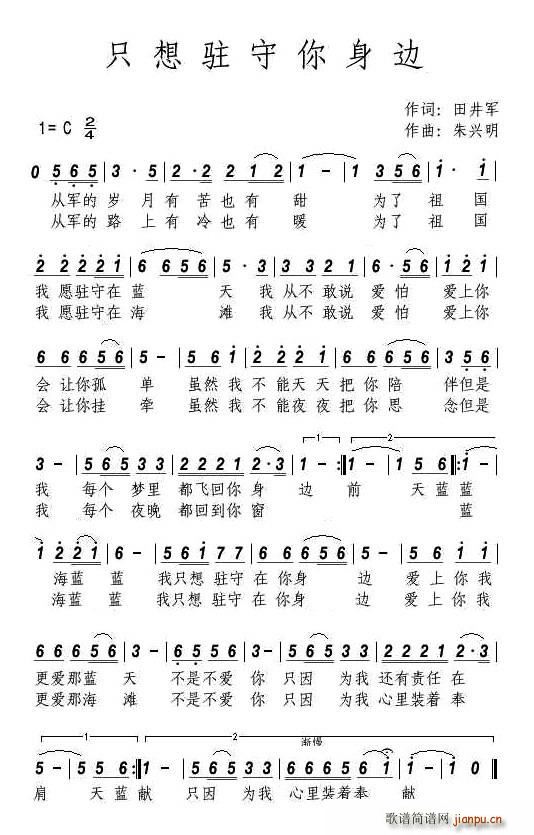 只想驻守你身边
作词：田井军
1=C 2/4
作曲：朱兴明
0 5 6 5 | 3 · 5 | 2 · 2 2 1 2 | 1 - | 1 3 5 6 | 1 · 1 |
从军的 岁 月有 苦也有 甜 为了 祖 国
从军的 路 上有 冷也有 暖 为了 祖 国
2 2 2 2 1 | 6 6 5 6 | 5 · 3 | 3 3 2 1 | 6 · 5 6 | 1 2 1 |
我愿驻守在 蓝 天 我 从不敢说 爱 怕 爱上你
我愿驻守在 海 滩 我 从不敢说 爱 怕 爱上你
6 6 6 5 6 | 5 - | 5 5 6 1 | 2 2 2 1 | 6 6 5 6 | 3 5 6 |
会让你孤 单 虽然我 不能天天 把你陪 伴但是
会让你挂 牵 虽然我 不能夜夜 把你思 念但是
1 2
3 - | 5 6 5 3 | 2 2 2 1 | 2 · 3 | 1 - :| 1 - | 1 5 6 |: 1 - |
我 每个 梦里 都飞回你 身 边 前 天蓝 蓝
我 每个 夜晚 都回到你 窗 蓝
1 2 2 1 | 6 - | 5 5 6 1 7 7 | 6 6 6 5 6 | 3 - | 6 1 2 1 |
海蓝 蓝 我只想驻守 在你身 边 爱上你我
海蓝 蓝 我只想驻守 在你身 边 爱上你我
6 6 6 5 6 | 3 - | 6 5 5 6 | 1 · 3 | 5 6 5 3 3 | 2 2 2 1 |
更爱那蓝 天 不是不爱 你 只因 为我 还有责任在
更爱那海 滩 不是不爱 你 只因 为我 心里装着奉
1 2 渐慢
5 - | 5 5 6 :| 2 - | 2 · 3 | 5 6 5 3 3 | 6 6 6 5 6 1 | 1 - | 1 0 ‖
肩 天蓝 献 只因 为我 心里装着奉 献
歌谱简谱网
jianpu.cn